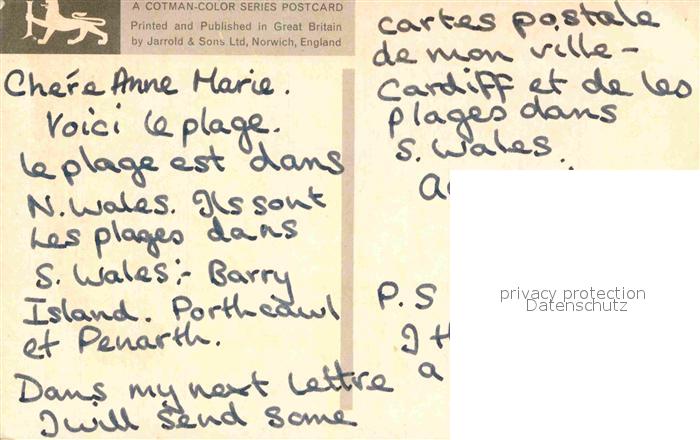 A COTMAN-COLOR SERIES POSTCARD
Printed and Published in Great Britain
by Jarrold & Sons Ltd, Norwich, England
Cheŕe Anne Marie.
Voici le plage.
le plage est dans
N. Wales. Ils sont
Les plages dans
S. Wales:- Barry
Island. Porthcawl
et Penarth.
Dans my next lettre
I will send some
cartes postale
de mon ville -
Cardiff et de les
plages dans
S. Wales.
P.S
I
a
privacy protection
Datenschutz